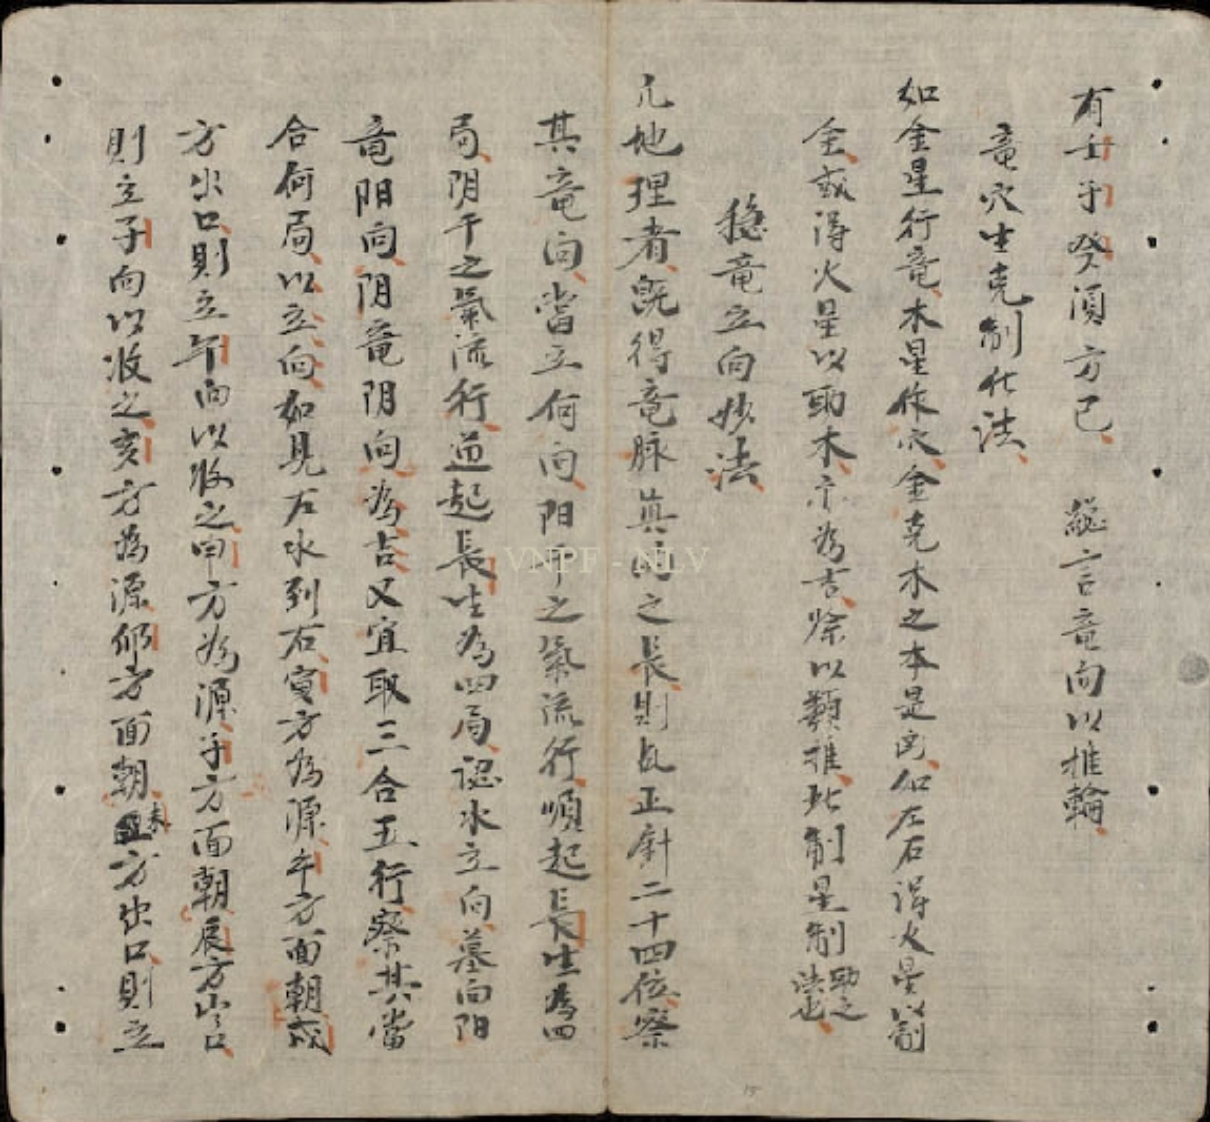 有壬子癸須方已　縱言竜向以推輪
竜穴生克制化法
如金星行竜木星作穴金克木之本是凶如左右得火星以制
金或得火星以助木亦為吉餘以類推此制星制助之法也
穩竜立向妙法
凡地理者既得竜脉真的之長則以正針二十四位察
其竜向當立何向阳干之氣流行順起長生為四
局阴干之氣流行逆起長生為四局認水立向墓向阳
竜阳向阴竜阴向為吉又宜取三合五行察其當
合何局以立向如見左水到右寅方為源午方面朝戌
方出口則立午向以收之申方為源子方面朝辰方出口
則立子向以收之亥方為源卯方面朝未方出口則立
VNPF - NLV
15